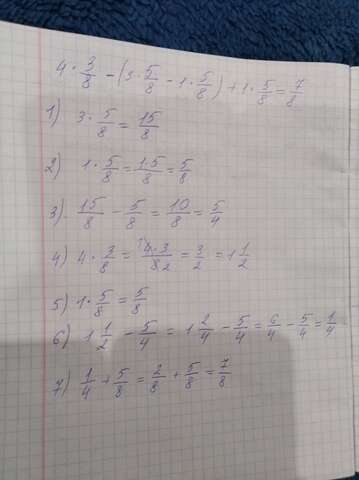 4 · 3/8 - (3 · 5/8 - 1 · 5/8) + 1 · 5/8 = 7/8
1) 3 · 5/8 = 15/8
2) 1 · 5/8 = 1·5/8 = 5/8
3) 15/8 - 5/8 = 10/8 = 5/4
4) 4 · 3/8 = 4·3/8 2 = 3/2 = 1 1/2
5) 1 · 5/8 = 5/8
6) 1 1/2 - 5/4 = 1 2/4 - 5/4 = 6/4 - 5/4 = 1/4
7) 1/4 + 5/8 = 2/8 + 5/8 = 7/8